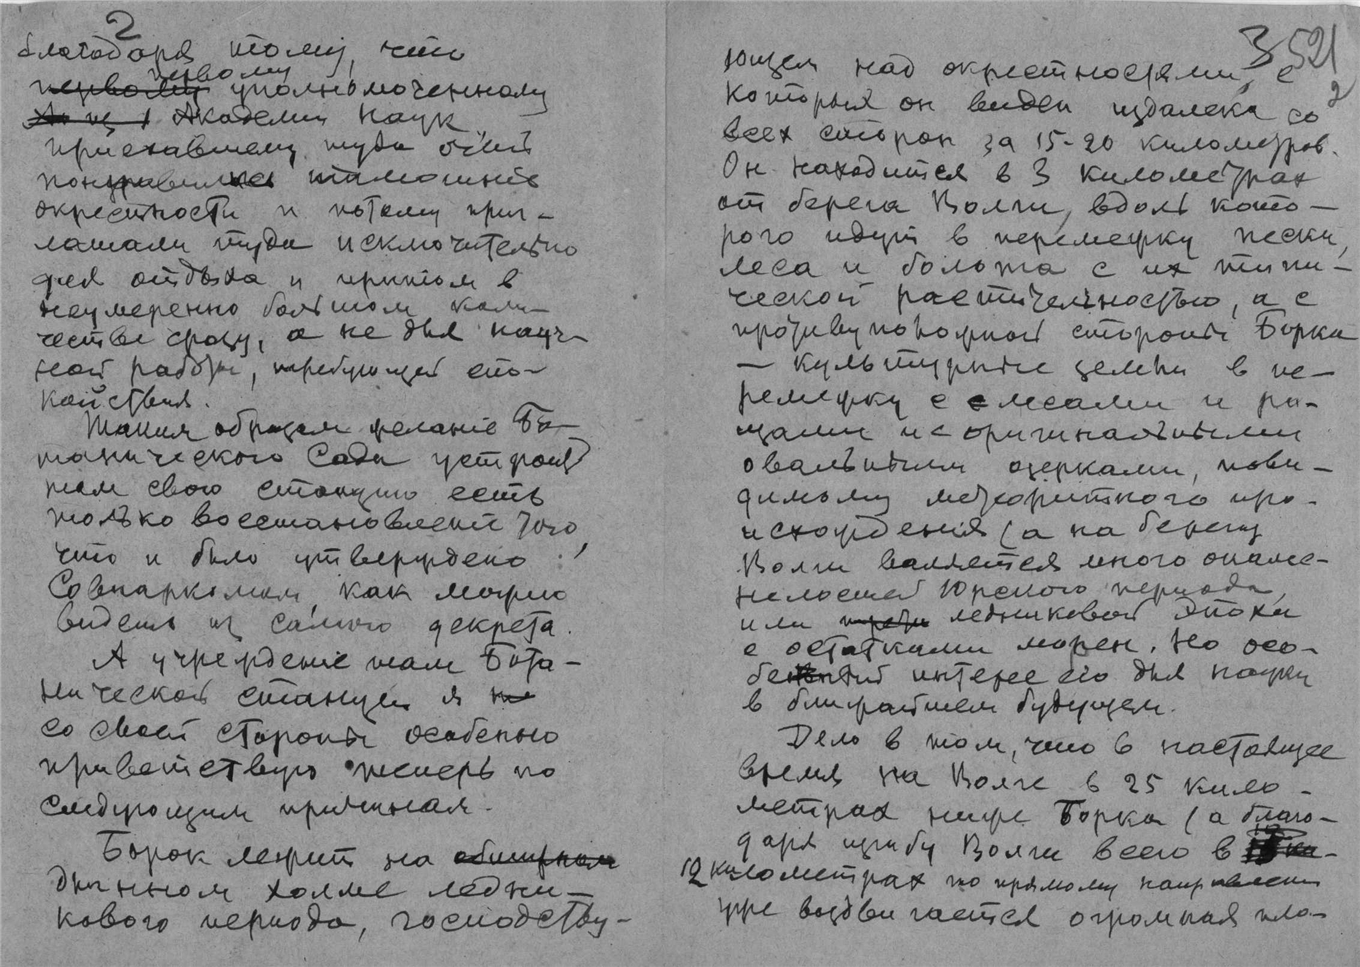 2
благодаря тому, что
первому
первому уполномоченному
Академии Наук,
приехавшему туда очень
понравились тамошние
окрестности и потому приг-
лашали туда исключительно
для отдыха и притом в
неумеренно большом коли-
честве сразу, а не для науч-
ной работы, требующей спо-
койствия.
Таким образом желание Бо-
танического Сада устроить
там свою станцию есть
только восстановление того,
что и было утверждено
Совнаркомом, как можно
видеть из самого декрета.
А учреждение там Бота-
нической станции я не
со своей стороны особенно
приветствую теперь по
следующим причинам.
Борок лежит на обширном
длинном холме ледни-
кового периода, господству-
3 521
2
ющем над окрестностями, с
которых он виден издалека со
всех сторон за 15-20 километров.
Он находится в 3 километрах
от берега Волги, вдоль кото-
рого идут в перемежку пески,
леса и болота с их типи-
ческой растительностью, а с
противуположной стороны Борка
— культурные земли в пе-
ремежку с лесами и ро-
щами и с оригинальными
овальными озерками, пови-
димому метеоритного про-
исхождения (а на берегу
Волги валяется много окаме-
нелостей Юрского периода,
или ледниковой эпохи
с остатками морен. Но осо-
бенный интерес его для науки
в ближайшем будущем.
Дело в том, что в настоящее
время на Волге в 25 кило-
метрах ниже Борка (а благо-
даря изгибу Волги всего в
12 километрах по прямому направлению
уже воздвигается огромная пло-